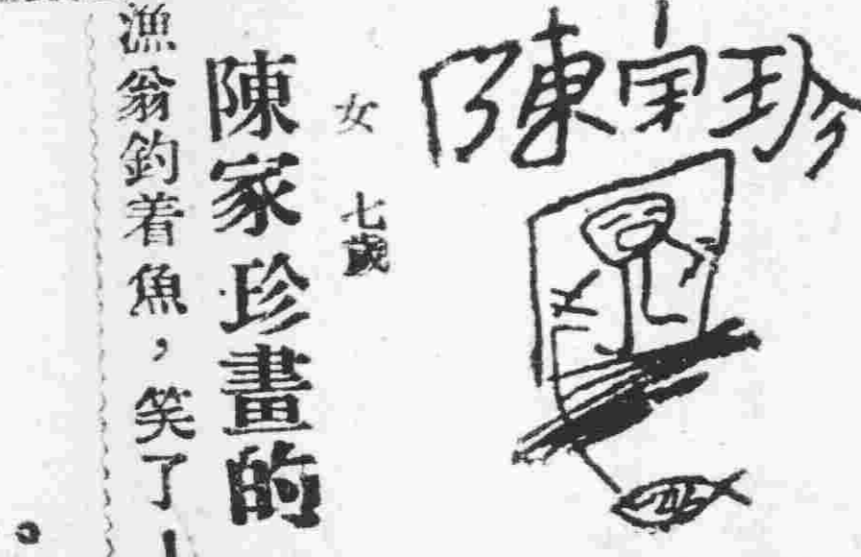 陳家珍
女 七歲
陳家珍畫的
漁翁釣着魚，笑了！
。